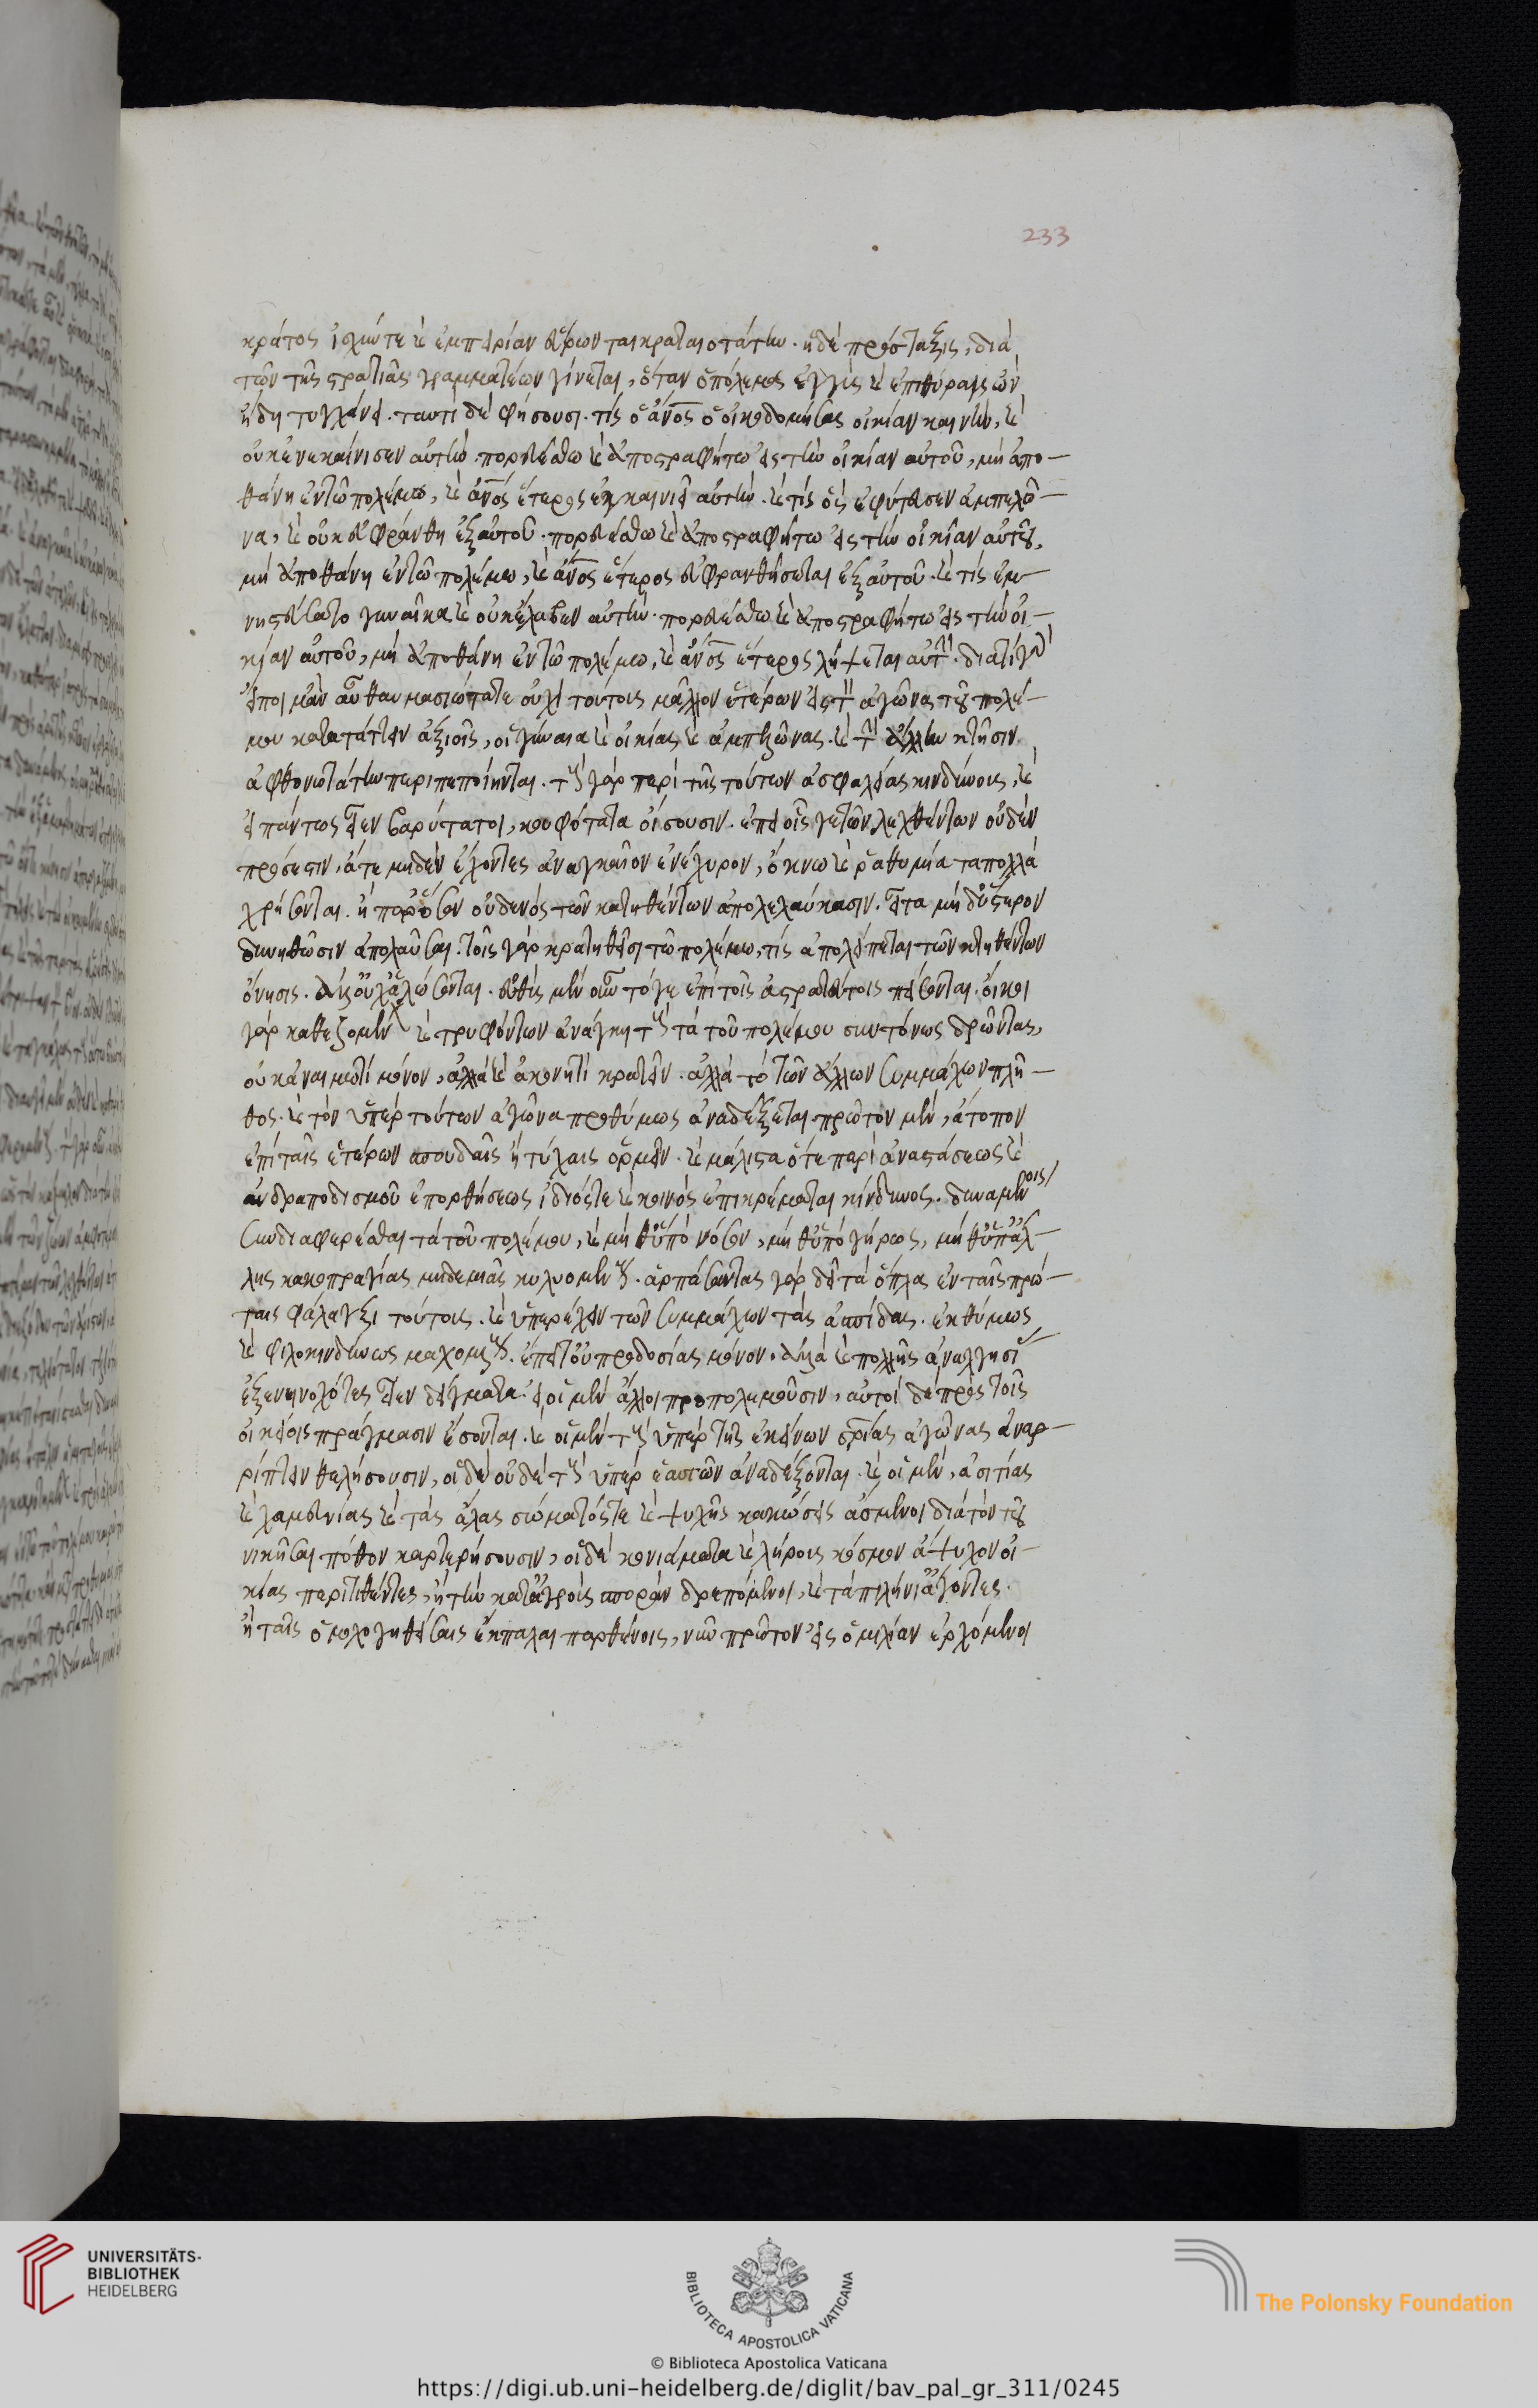 233
κράτος ἰσχύν τε καὶ ἐμπειρίαν εὕρωνται κραταιοτάτην. ἡ δὲ πρόσταξις, διὰ
τῶν τῆς στρατιᾶς γραμματέων γίνεται, ὅταν ὁ πόλεμος ἐγγὺς καὶ ἐπιθύραις ὢν
ἤδη τυγχάνει. ταυτὶ δὲ φήσουσι. τίς ὁ ἄνος ὁ οἰκοδομήσας οἰκίαν καινὴν, καὶ
οὐκ ἐνεκαίνισεν αὐτήν. πορευέσθω καὶ ἀποστραφήτω εἰς τὴν οἰκίαν αὐτοῦ, μὴ ἀπο-
θάνη ἐν τῶ πολέμω, καὶ ἄνος ἕτερος ἐγκαινιεῖ αὐτήν. καὶ τίς ὃς ἐφύτευσεν ἀμπελῶ-
να, καὶ οὐκ εὐφράνθη ἐξ αὐτοῦ. πορευέσθω καὶ ἀποστραφήτω εἰς τὴν οἰκίαν αὐτοῦ,
μὴ ἀποθάνη ἐν τῶ πολέμω, καὶ ἄνος ἕτερος εὐφρανθήσεται ἐξ αὐτοῦ. καὶ τίς ἐμ-
νηστεύσατο γυναῖκα καὶ οὐκ ἔλαβεν αὐτήν. πορευέσθω καὶ ἀποστραφήτω εἰς τὴν οἰ-
κίαν αὐτοῦ, μὴ ἀποθάνη ἐν τῶ πολέμω, καὶ ἄνος ἕτερος λήψεται αὐτήν. διατί γὰρ
εἴποιμ' ἂν ὦ θαυμασιώτατε οὐχὶ τούτοις μᾶλλον ἑτέρων εἰς τὸν ἀγῶνα τοῦ πολέ-
μου κατατάττειν ἀξιοῖς, οἳ γύναια καὶ οἰκίας καὶ ἀμπελῶνας. καὶ τὴν ἄλλην κτῆσιν
ἀφθονωτάτην περιπεποίηνται. τοὺς γὰρ περὶ τῆς τούτων ἀσφαλείας κινδύνους, καὶ
εἰ πάντως εἶεν βαρύτατοι, κουφότατα οἴσουσιν. ἐπεὶ οἷς γε τῶν λεχθέντων οὐδὲν
πρόσεστιν, ἅτε μηδὲν ἔχοντες ἀναγκαῖον ἐνέχυρον, ὄκνω καὶ ῥαθυμία τὰ πολλὰ
χρήσονται. ἢ παρόσον οὐδενὸς τῶν κτηθέντων ἀπολελαύκασιν. εἶτα μὴ δ' ὕστερον
δυνηθῶσιν ἀπολαῦσαι. τοῖς γὰρ κρατηθεῖσι τῶ πολέμω, τίς ἀπολείπεται τῶν κτηθέντων
ὄνησις. ἀλλ' οὐχ ἁλώσονται. εὐθὺς μὲν οὖν τόγε ἐπὶ τοῖς ἀστρατεύτοις πείσονται. οἴκοι
γὰρ καθεζομένων καὶ τρυφόντων ἀνάγκη τοὺς τὰ τοῦ πολέμου συντόνως δρῶντας,
οὐκ ἀναιμωτὶ μόνον, ἀλλὰ καὶ ἀκονητὶ κρατεῖν. ἀλλὰ τὸ τῶν ἄλλων συμμάχων πλῆ-
θος. καὶ τὸν ὑπὲρ τούτων ἀγῶνα προθύμως ἀναδέξεται. πρῶτον μὲν, ἄτοπον
ἐπὶ ταῖς ἑτέρων σπουδαῖς ἢ τύχαις ὁρμεῖν. καὶ μάλιστα ὅτε περὶ ἀναστάσεως καὶ
ἀνδραποδισμοῦ ἐπορθήσεως ἴδιός τε καὶ κοινὸς ἐπικρέμαται κίνδυνος. δυναμένοις
συνδιαφέρεσθαι τὰ τοῦ πολέμου, καὶ μὴ θ' ὑπὸ νόσου, μὴ θ' ὑπὸ γήρως, μὴ θ' ὑπ' ἄλ-
λης κακοπραγίας μηδεμιᾶς κωλυομένους. ἁρπάσαντας γὰρ δεῖ τὰ ὅπλα ἐν ταῖς πρώ-
ταις φάλαγξι τούτοις. καὶ ὑπερέχειν τῶν συμμάχων τὰς ἀσπίδας. ἐκθύμως
καὶ φιλοκινδύνως μαχομένους. ἔπειτ' οὐ προδοσίας μόνον. ἀλλὰ καὶ πολλῆς ἀναλγησίας
ἐξενηνοχότες εἶεν δείγματα. εἰ οἱ μὲν ἄλλοι προπολεμοῦσιν, αὐτοὶ δὲ πρὸς τοῖς
οἰκείοις πράγμασιν ἔσονται. καὶ οἱ μὲν τοὺς ὑπὲρ τῆς ἐκείνων σρίας ἀγῶνας ἀναρ-
ρίπτειν θελήσουσιν, οἱ δὲ οὐδὲ τοὺς ὑπὲρ ἑαυτῶν ἀναδέξονται. καὶ οἱ μὲν, ἀσιτίας
καὶ χαμευνίας καὶ τὰς ἄλλας σώματός τε καὶ ψυχῆς κακώσεις ἄσμενοι διὰ τὸν τοῦ
νικῆσαι πόθον καρτερήσουσιν, οἱ δὲ κονιάματα καὶ λήρους κόσμον ἄψυχον οἰ-
κίας περιτιθέντες, ἢ τὴν κατ' ἀγροὺς ὀπώραν δρεπόμενοι, καὶ τὰ πιλήνια ἄγοντες.
ἢ ταῖς ὁμολογηθείσαις ἔκπαλαι παρθένοις, νῦν πρῶτον εἰς ὁμιλίαν ἐρχόμενοι
UNIVERSITÄTS-
BIBLIOTHEK
HEIDELBERG
BIBLIOTECA APOSTOLICA VATICANA
The Polonsky Foundation
© Biblioteca Apostolica Vaticana
https://digi.ub.uni-heidelberg.de/diglit/bav_pal_gr_311/0245